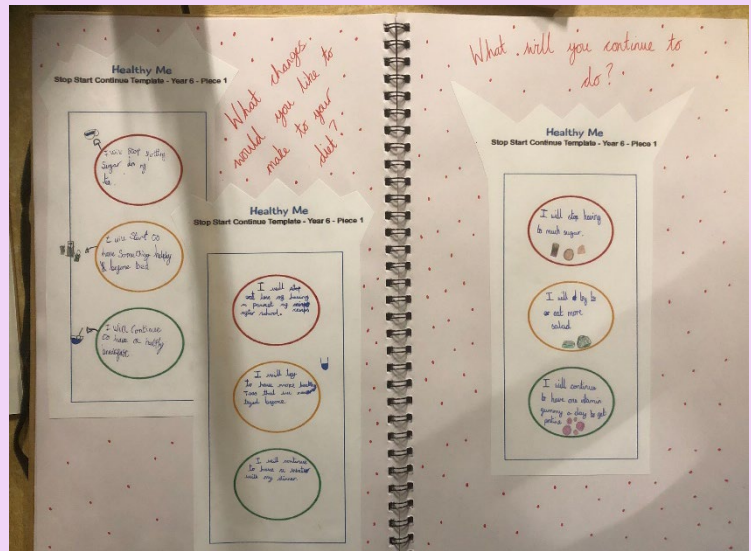 Healthy Me
Stop Start Continue Template - Year 6 - Piece 1
I will stop putting
Sugar in my
tea.
I will Start to
have Something helthy
before bed
I will Continue
to have a helthy
breakfast
What changes
would you like to
make to your
diet?
Healthy Me
Stop Start Continue Template - Year 6 - Piece 1
I will stop
having
a packet of
after school.
I will try
to have more healthy
I will continue
to have a water
with my dinner.
What will you continue to
do?
Healthy Me
Stop Start Continue Template - Year 6 - Piece 1
I will stop having
to much sugar.
I will try to
eat more
salad
I will continue
to have one vitamin
gummy a day to get